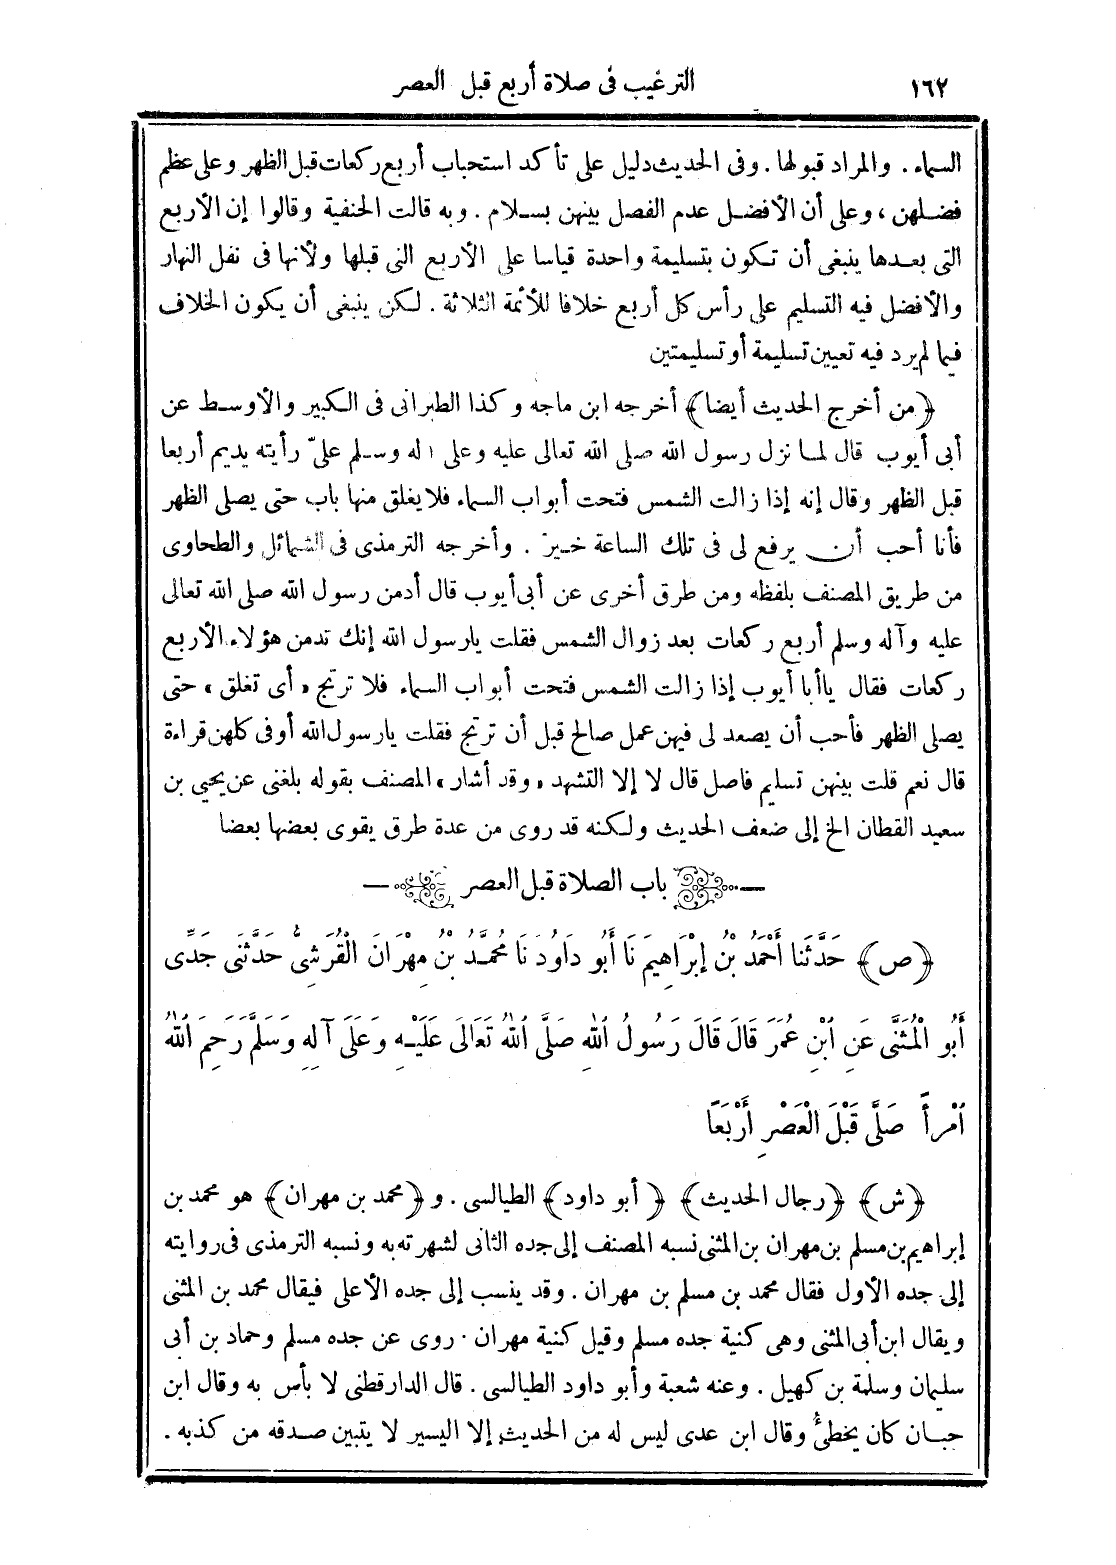 ١٦٢
الترغيب فى صلاة أربع قبل العصر
السماء. والمراد قبولها. وفى الحديث دليل على تأكد استحباب أربع ركعات قبل الظهر وعلى عظم
فضلهن، وعلى أن الأفضل عدم الفصل بينهن بسلام. وبه قالت الحنفية وقالوا إن الأربع
التى بعدها ينبغى أن تكون بتسليمة واحدة قياسا على الأربع التى قبلها ولأنها فى نفل النهار
والأفضل فيه التسليم على رأس كل أربع خلافا للأئمة الثلاثة. لكن ينبغى أن يكون الخلاف
فيما لم يرد فيه تعيين تسليمة أو تسليمتين
﴿من أخرج الحديث أيضا﴾ أخرجه ابن ماجه وكذا الطبرانى فى الكبير والأوسط عن
أبى أيوب قال لما نزل رسول الله صلى الله تعالى عليه وعلى اله وسلم علىّ رأيته يديم أربعا
قبل الظهر وقال إنه إذا زالت الشمس فتحت أبواب السماء فلا يغلق منها باب حتى يصلى الظهر
فأنا أحب أن يرفع لى فى تلك الساعة خير. وأخرجه الترمذى فى الشمائل والطحاوى
من طريق المصنف بلفظه ومن طرق أخرى عن أبى أيوب قال أدمن رسول الله صلى الله تعالى
عليه وآله وسلم أربع ركعات بعد زوال الشمس فقلت يارسول الله إنك تدمن هؤلاء الأربع
ركعات فقال ياأبا أيوب إذا زالت الشمس فتحت أبواب السماء فلا ترتج «أى تغلق» حتى
يصلى الظهر فأحب أن يصعد لى فيهن عمل صالح قبل أن ترتج فقلت يارسول الله أوفى كلهن قراءة
قال نعم قلت بينهن تسليم فاصل قال لا إلا التشهد «وقد أشار» المصنف بقوله بلغنى عن يحيى بن
سعيد القطان الخ إلى ضعف الحديث ولكنه قد روى من عدة طرق يقوى بعضها بعضا
باب الصلاة قبل العصر
﴿ص﴾ حَدَّثَنَا أَحْمَدُ بْنُ إِبْرَاهِيمَ نَا أَبُو دَاوُدَ نَا مُحَمَّدُ بْنُ مِهْرَانَ الْقُرَشِىُّ حَدَّثَنِى جَدِّى
أَبُو الْمُثَنَّى عَنِ ابْنِ عُمَرَ قَالَ قَالَ رَسُولُ اللهِ صَلَّى اللهُ تَعَالَى عَلَيْهِ وَعَلَى آلِهِ وَسَلَّمَ رَحِمَ اللهُ
امْرأً صَلَّى قَبْلَ الْعَصْرِ أَرْبَعًا
﴿ش﴾ ﴿رجال الحديث﴾ ﴿أبو داود﴾ الطيالسى. و﴿محمد بن مهران﴾ هو محمد بن
إبراهيم بن مسلم بن مهران بن المثنى نسبه المصنف إلى جده الثانى لشهرته به ونسبه الترمذى فى روايته
إلى جده الأول فقال محمد بن مسلم بن مهران. وقد ينسب إلى جده الأعلى فيقال محمد بن المثنى
ويقال ابن أبى المثنى وهى كنية جده مسلم وقيل كنية مهران. روى عن جده مسلم وحماد بن أبى
سليمان وسلمة بن كهيل. وعنه شعبة وأبو داود الطيالسى. قال الدارقطنى لا بأس به وقال ابن
حبان كان يخطئ وقال ابن عدى ليس له من الحديث إلا اليسير لا يتبين صدقه من كذبه.